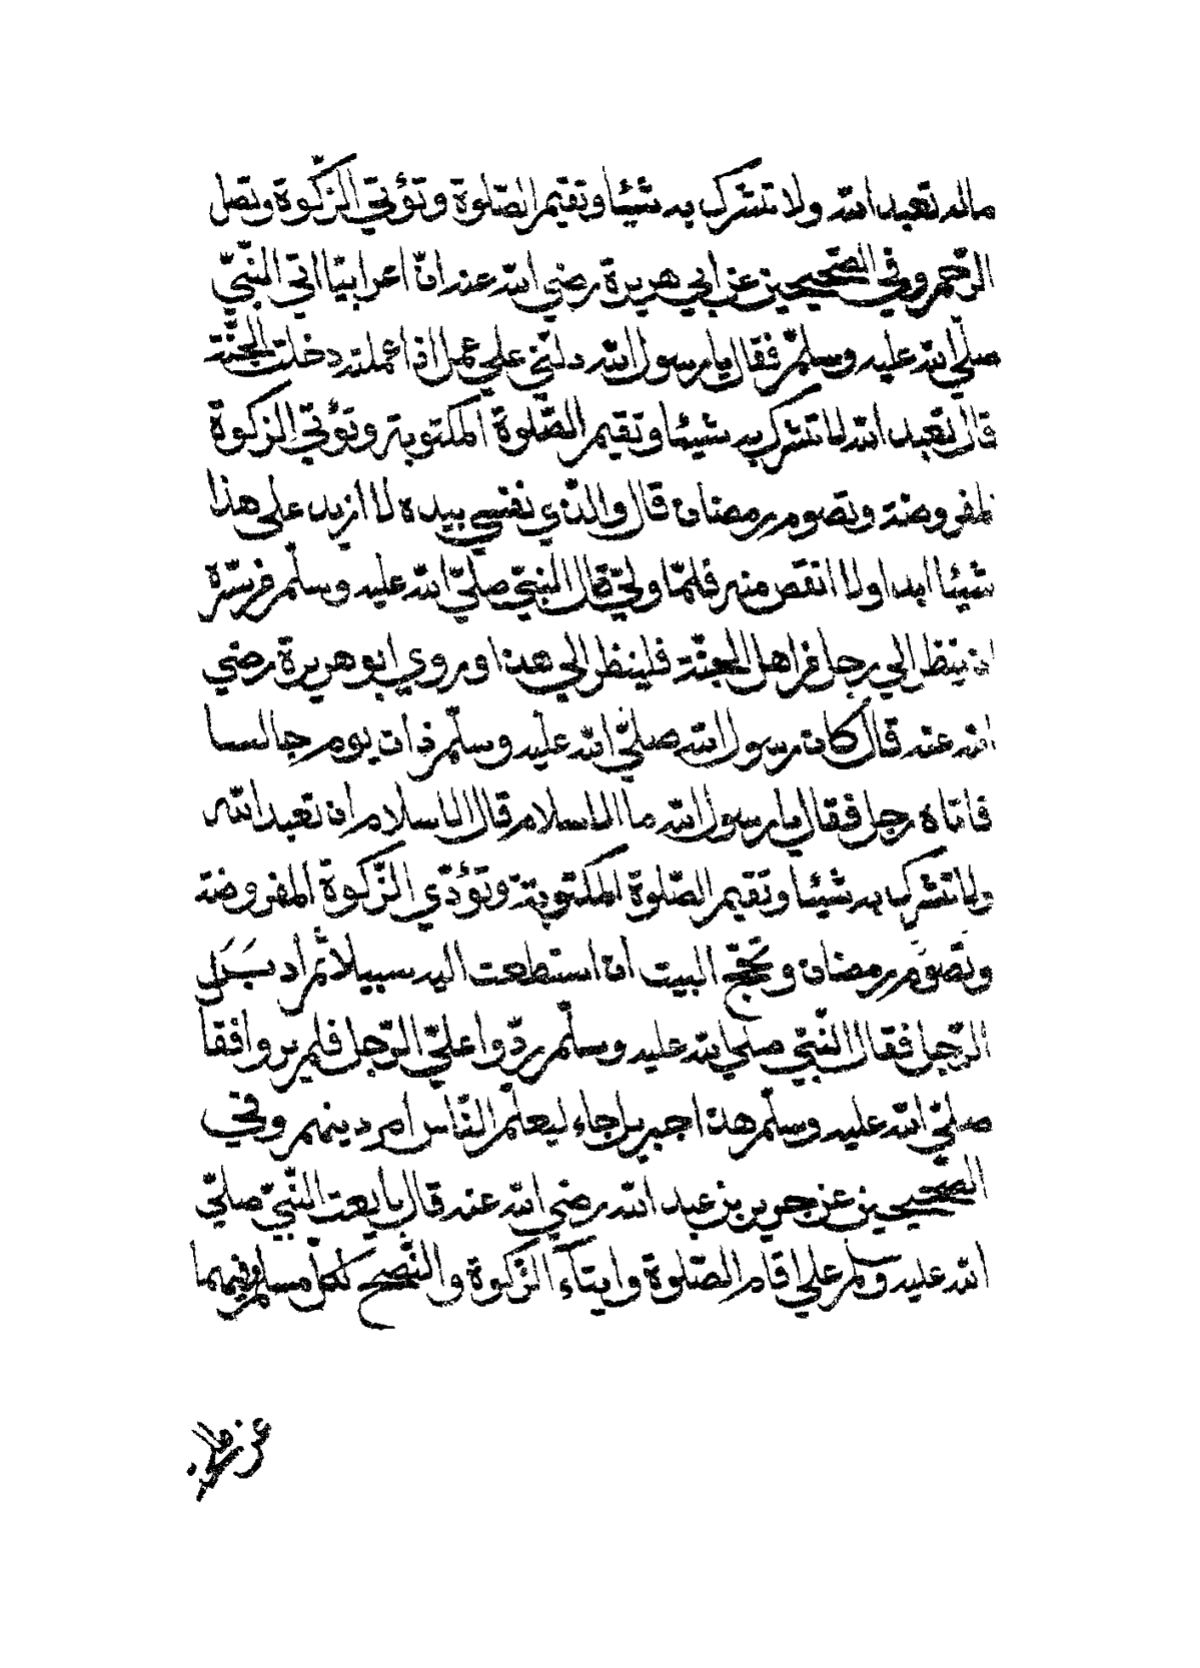 ماله تعبد الله ولا تشرك به شيئا وتقيم الصّلوة وتؤتي الزّكوة وتصل
الرّحم وفي الصّحيحين عن ابي هريرة رضي الله عنه انّ اعرابيّا اتي النّبيّ
صلّي الله عليه وسلّم فقال يا رسول الله دلّني علي عمل اذا عملته دخلت الجنّة
قال تعبد الله لا تشرك به شيئا وتقيم الصّلوة المكتوبة وتؤتي الزكوة
لمفروضة وتصوم رمضان قال والّذي نفسي بيده لا ازيد علي هذا
شيئا ابدا ولا انقص منه فلمّا ولّي قال النبيّ صلّي الله عليه وسلّم من سرّه
ان ينظر الي رجل من اهل الجنّة فلينظر الي هذا وروي ابو هريرة رضي
الله عنه قال كان رسول الله صلّي الله عليه وسلّم ذات يوم جالسا
فاتاه رجل فقال يا رسول الله ما الاسلام قال الاسلام ان تعبد الله
ولا تشرك به شيئا وتقيم الصّلوة المكتوبة وتؤدّي الزّكوة المفروضة
وتصوم رمضان وتحجّ البيت ان استطعت اليه سبيلا ثم ادبر
الرّجل فقال النّبيّ صلي الله عليه وسلّم ردّوا عليّ الرّجل فلم يروا فقا
صلّي الله عليه وسلّم هذا جبريل جاء ليعلّم النّاس امر دينهم وفي
الصّحيحين عن جرير بن عبد الله رضي الله عنه قال بايعت النّبيّ صلّي
الله عليه وسلم علي اقام الصّلوة وايتآء الزّكوة والنّصح لكلّ مسلم وفيهما